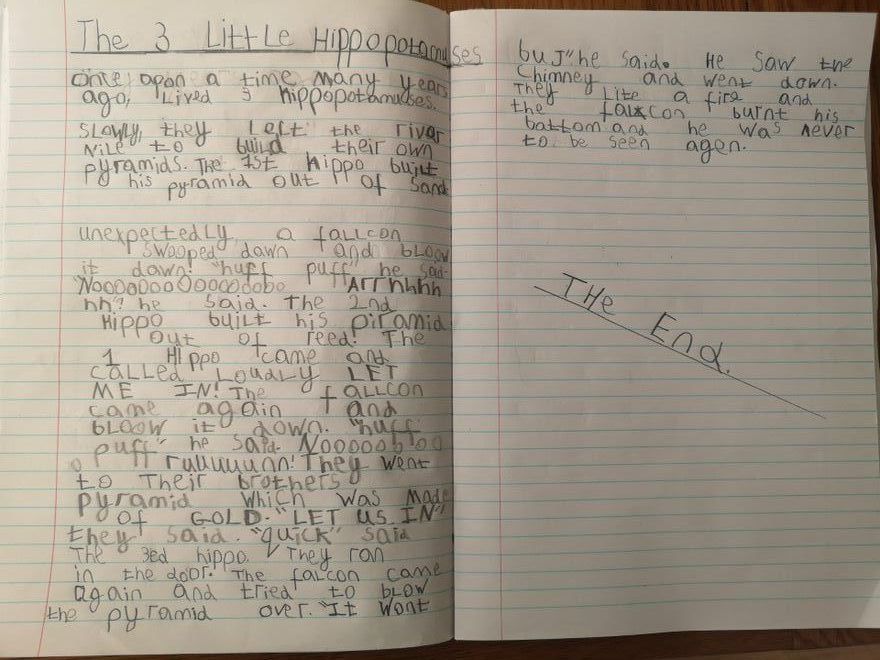 The 3 Little Hippopotamuses
once upon a time many years
ago, Lived 3 hippopotamuses.
Slowly, they Left the river
Nile to build their own
pyramids. The 1st hippo built
his pyramid out of sand
unexpectedly a fallcon
swooped down and bloow
it down! "huff puff" he said.
"Nooooooooooooobo Arrhhhh
hh? he said. The 2nd
Hippo built his piramid
out of reed! The
1 Hippo came and
called Loudly LET
ME IN! The fallcon
came again and
bloow it down. "huff
puff" he said. Nooooobloo
o ruuuuunn! They went
to Their brothers
pyramid which was made
of GOLD. "LET US IN"
they said. "quick" said
The 3ed hippo. They ran
in the door. The falcon came
again and tried to blow
the pyramid over. "It wont
buJ" he said. He saw the
Chimney and went down.
They Lite a fire and
the falcon burnt his
bottom and he was never
to be seen agen.
THe End.